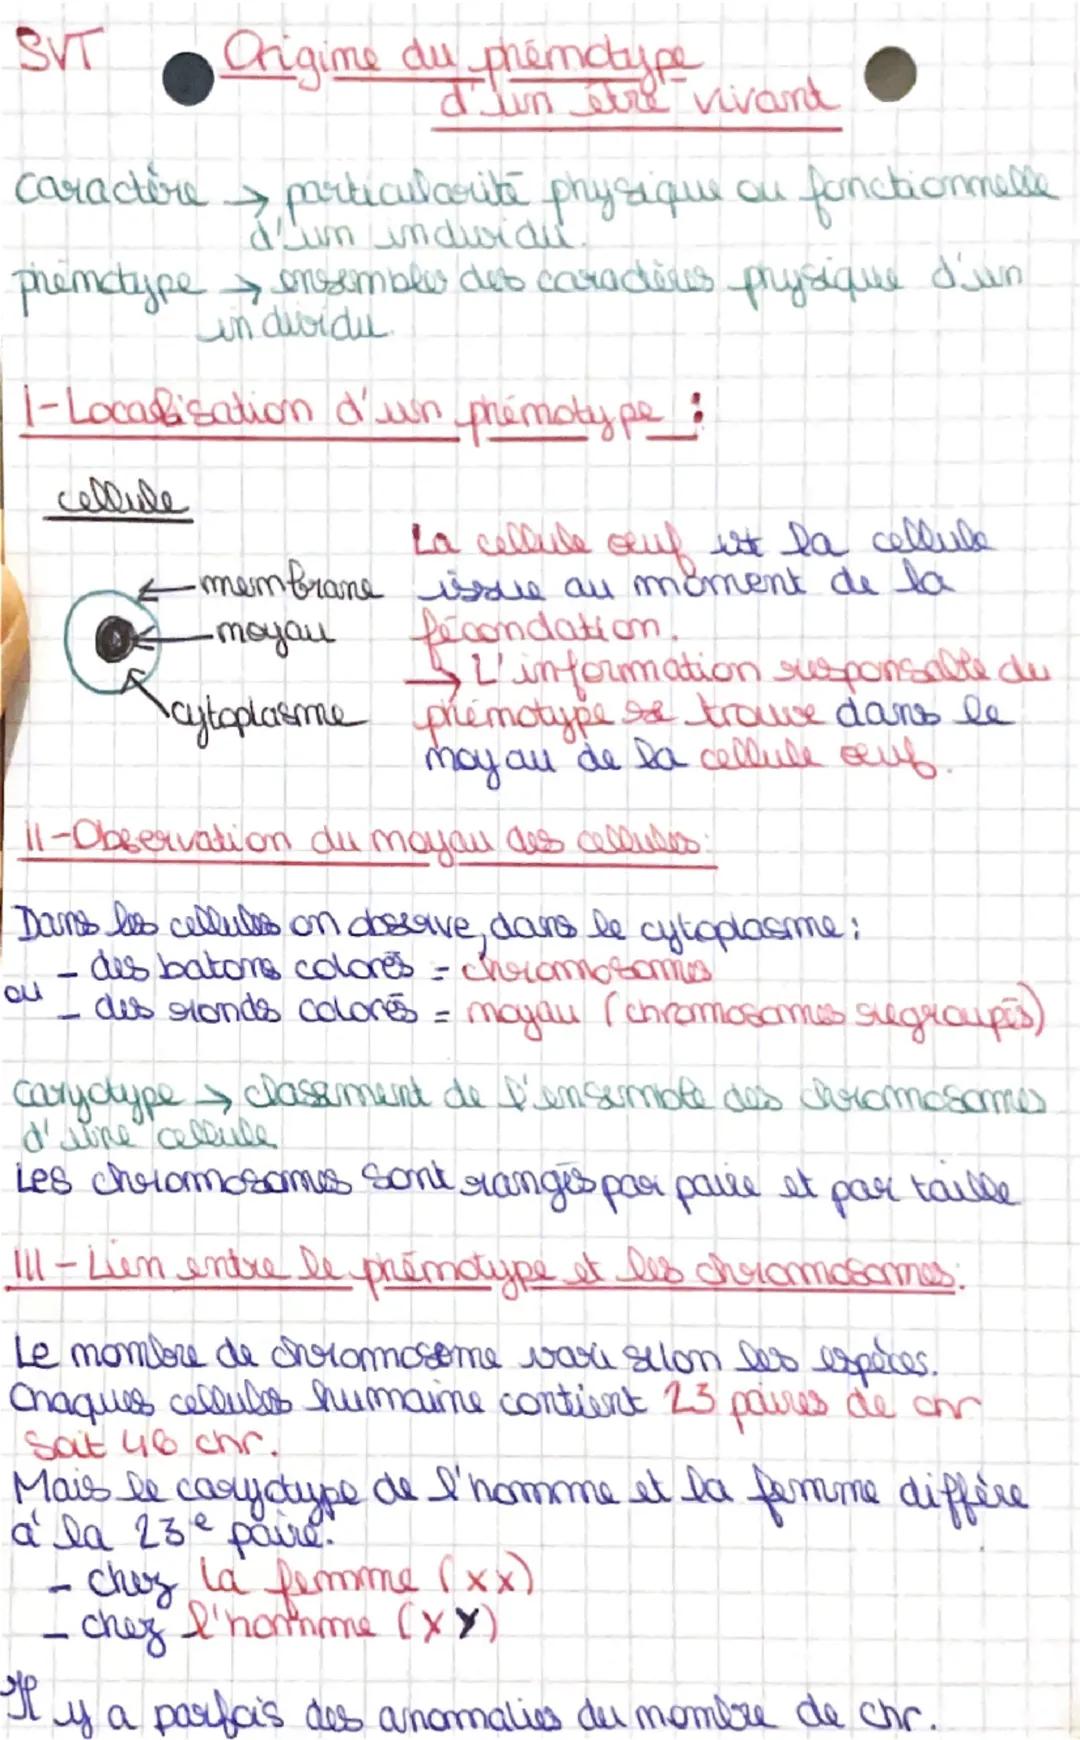 SVT
Origine du phénotype
d'un être vivant
caractère → particularité physique ou fonctionnelle
d'un individu.
phénotype → ensembles des caractères physique d'un
individu.
I-Localisation d'un phénotype :
cellule
membrane
noyau
cytoplasme
La cellule œuf est la cellule
issue au moment de la
fécondation.
↳ L'information responsable du
phénotype se trouve dans le
noyau de la cellule œuf.
II-Observation du noyau des cellules:
Dans les cellules on observe, dans le cytoplasme :
- des batons colorés = chromosomes
ou
- des ronds colorés = noyau (chromosomes regroupés)
caryotype → classement de l'ensemble des chromosomes
d'une cellule
Les chromosomes sont rangés par paire et par taille
III - Lien entre le phénotype et les chromosomes:
Le nombre de chromosome varie selon les espèces.
Chaques cellules humaine contient 23 paires de chr
soit 46 chr.
Mais le caryotype de l'homme et la femme diffère
à la 23e paire.
- chez la femme (XX)
- chez l'homme (XY)
Il y a parfois des anomalies du nombre de chr.